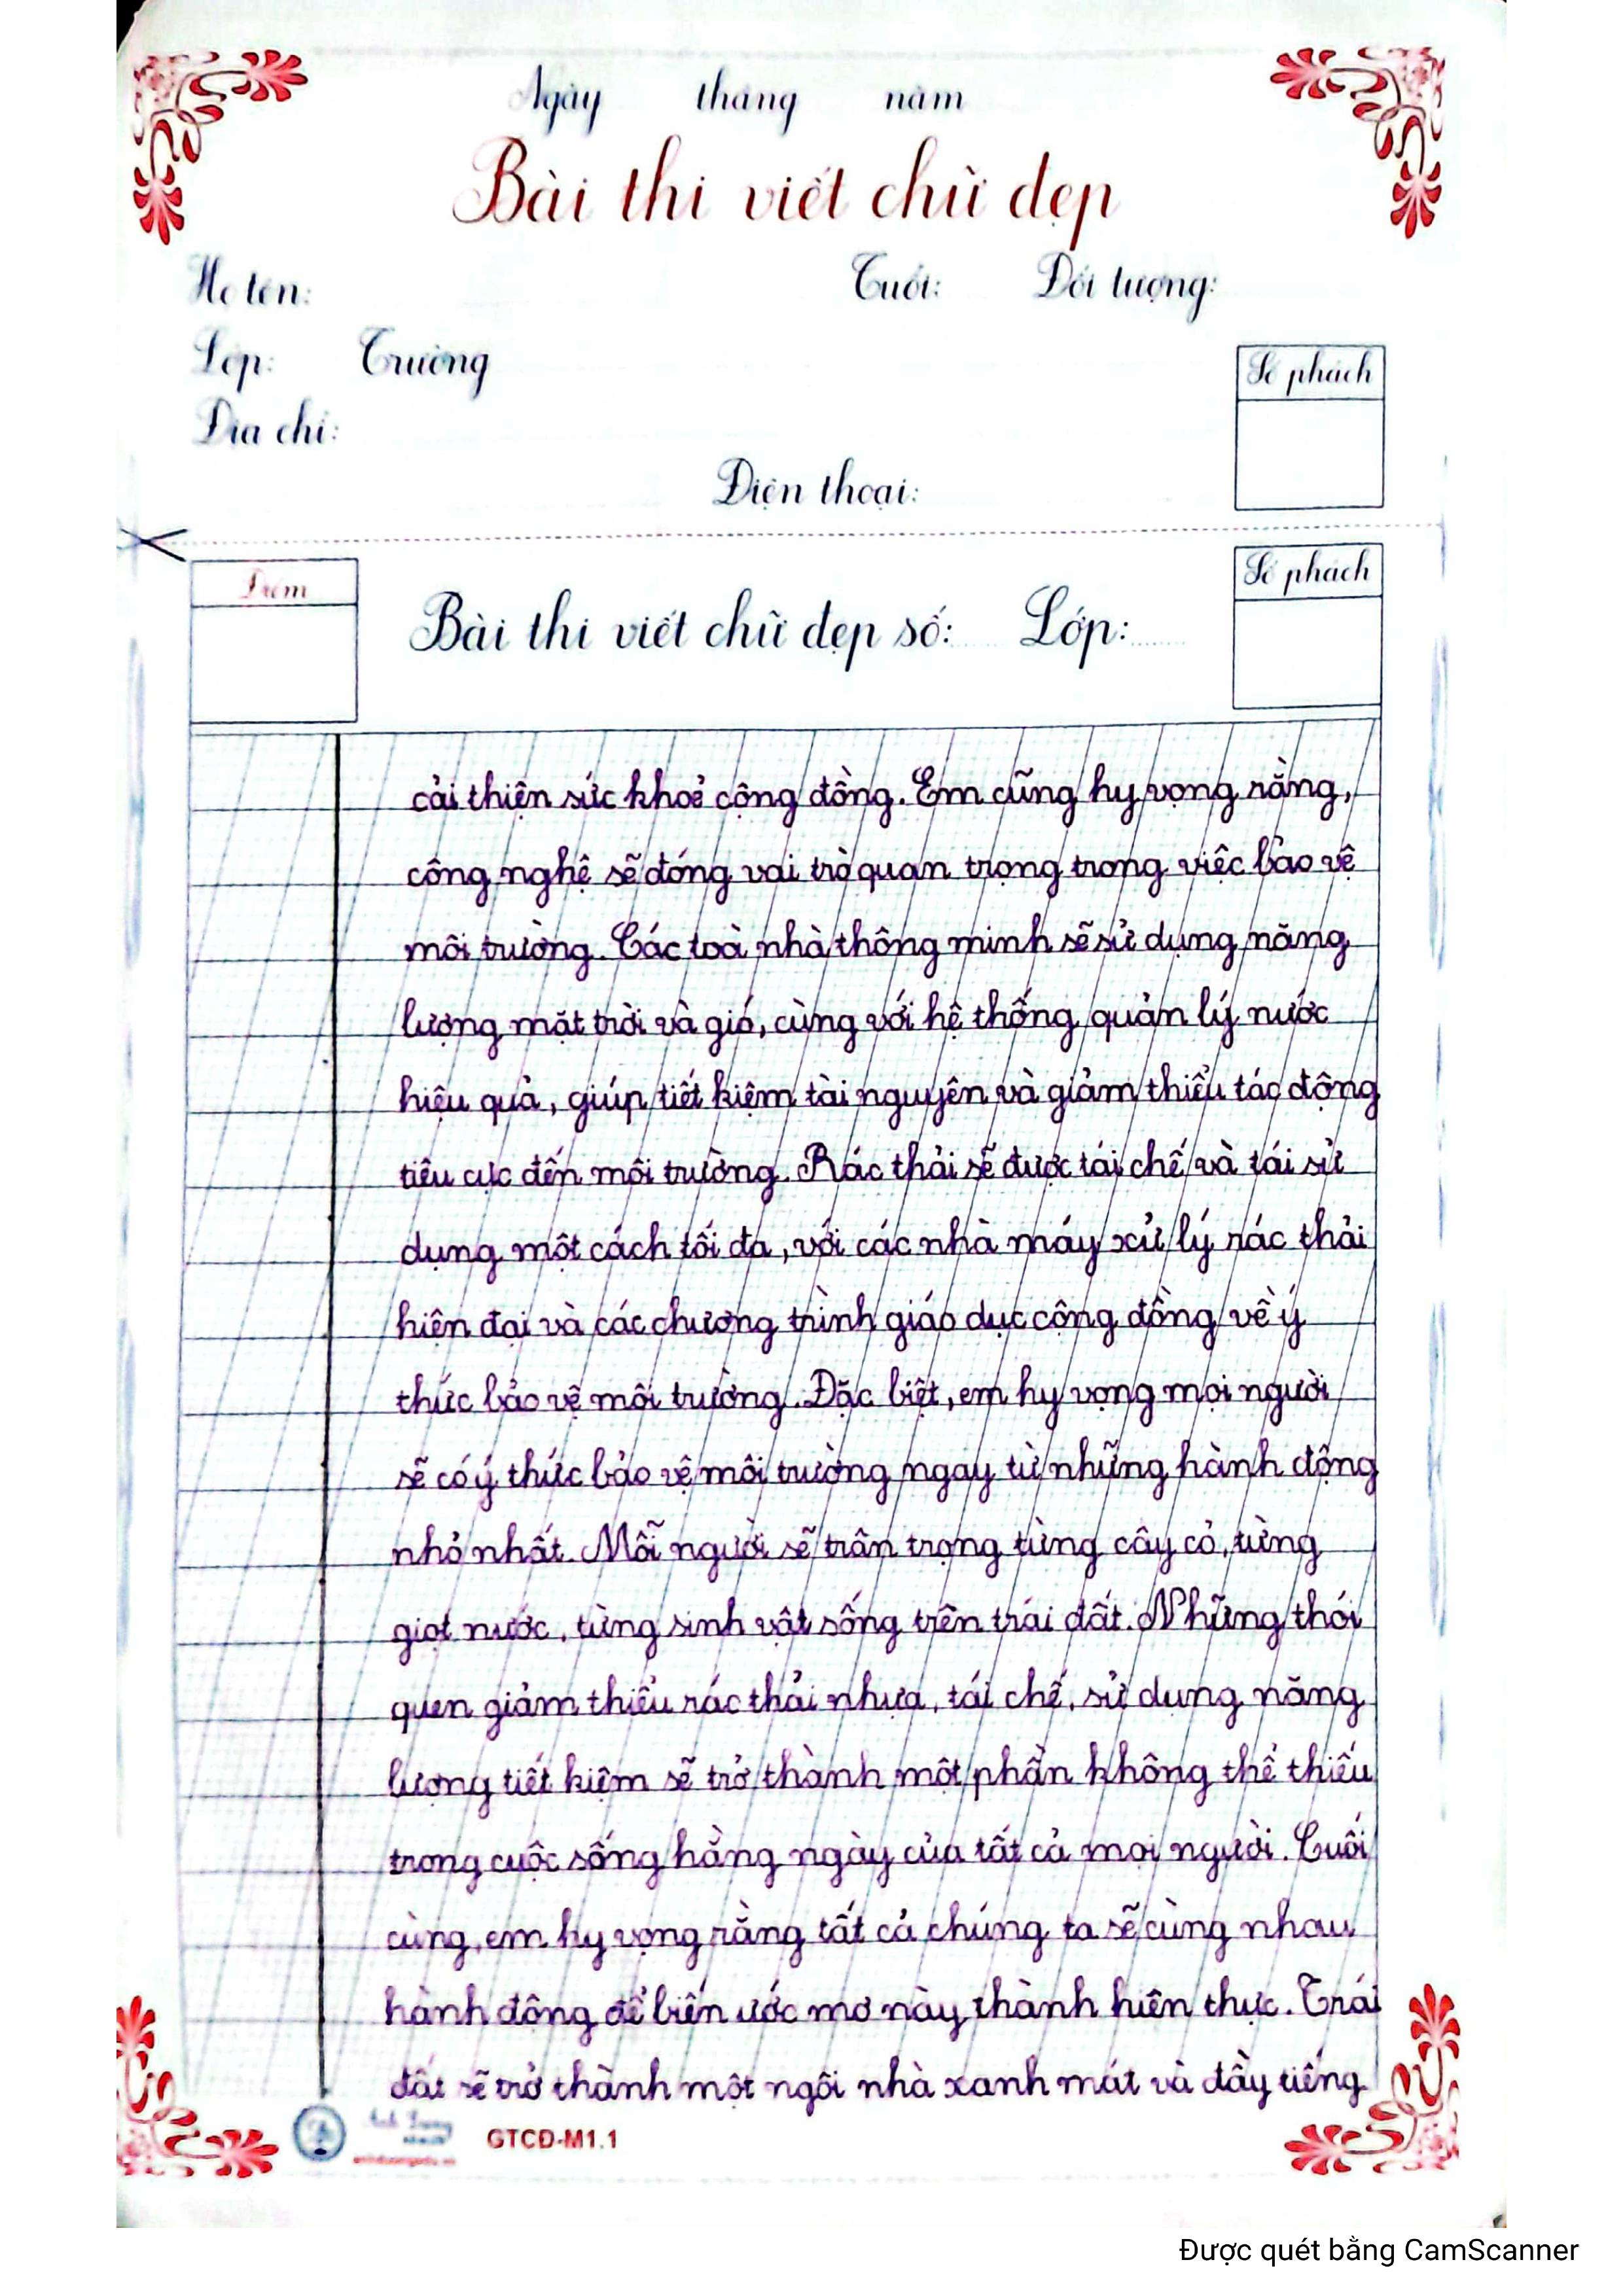 Ngày tháng năm
Bài thi viết chữ đẹp
Họ tên: Tuổi: Đối tượng:
Lớp: Trường
Địa chỉ:
Số phách
Điện thoại:
Điểm
Số phách
Bài thi viết chữ đẹp số: Lớp:
cải thiện sức khoẻ cộng đồng. Em cũng hy vọng rằng,
công nghệ sẽ đóng vai trò quan trọng trong việc bảo vệ
môi trường. Các toà nhà thông minh sẽ sử dụng năng
lượng mặt trời và gió, cùng với hệ thống quản lý nước
hiệu quả, giúp tiết kiệm tài nguyên và giảm thiểu tác động
tiêu cực đến môi trường. Rác thải sẽ được tái chế và tái sử
dụng một cách tối đa, với các nhà máy xử lý rác thải
hiện đại và các chương trình giáo dục cộng đồng về ý
thức bảo vệ môi trường. Đặc biệt, em hy vọng mọi người
sẽ có ý thức bảo vệ môi trường ngay từ những hành động
nhỏ nhất. Mỗi người sẽ trân trọng từng cây cỏ, từng
giọt nước, từng sinh vật sống trên trái đất. Những thói
quen giảm thiểu rác thải nhựa, tái chế, sử dụng năng
lượng tiết kiệm sẽ trở thành một phần không thể thiếu
trong cuộc sống hằng ngày của tất cả mọi người. Cuối
cùng, em hy vọng rằng tất cả chúng ta sẽ cùng nhau
hành động để biến ước mơ này thành hiện thực. Trái
đất sẽ trở thành một ngôi nhà xanh mát và đầy tiếng
GTCĐ-M1.1
Được quét bằng CamScanner